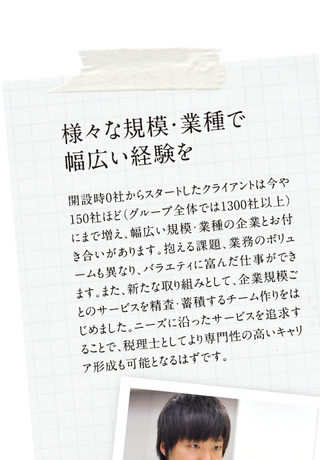 様々な規模・業種で
幅広い経験を
開設時0社からスタートしたクライアントは今や
150社ほど（グループ全体では1300社以上）
にまで増え、幅広い規模・業種の企業とお付
き合いがあります。抱える課題、業務のボリュ
ームも異なり、バラエティに富んだ仕事ができ
ます。また、新たな取り組みとして、企業規模ご
とのサービスを精査・蓄積するチーム作りをは
じめました。ニーズに沿ったサービスを追求す
ることで、税理士としてより専門性の高いキャリ
ア形成も可能となるはずです。